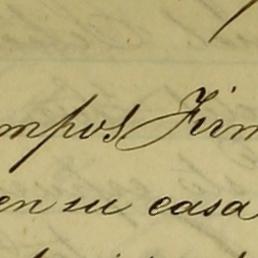 mpos Firm
en su casa